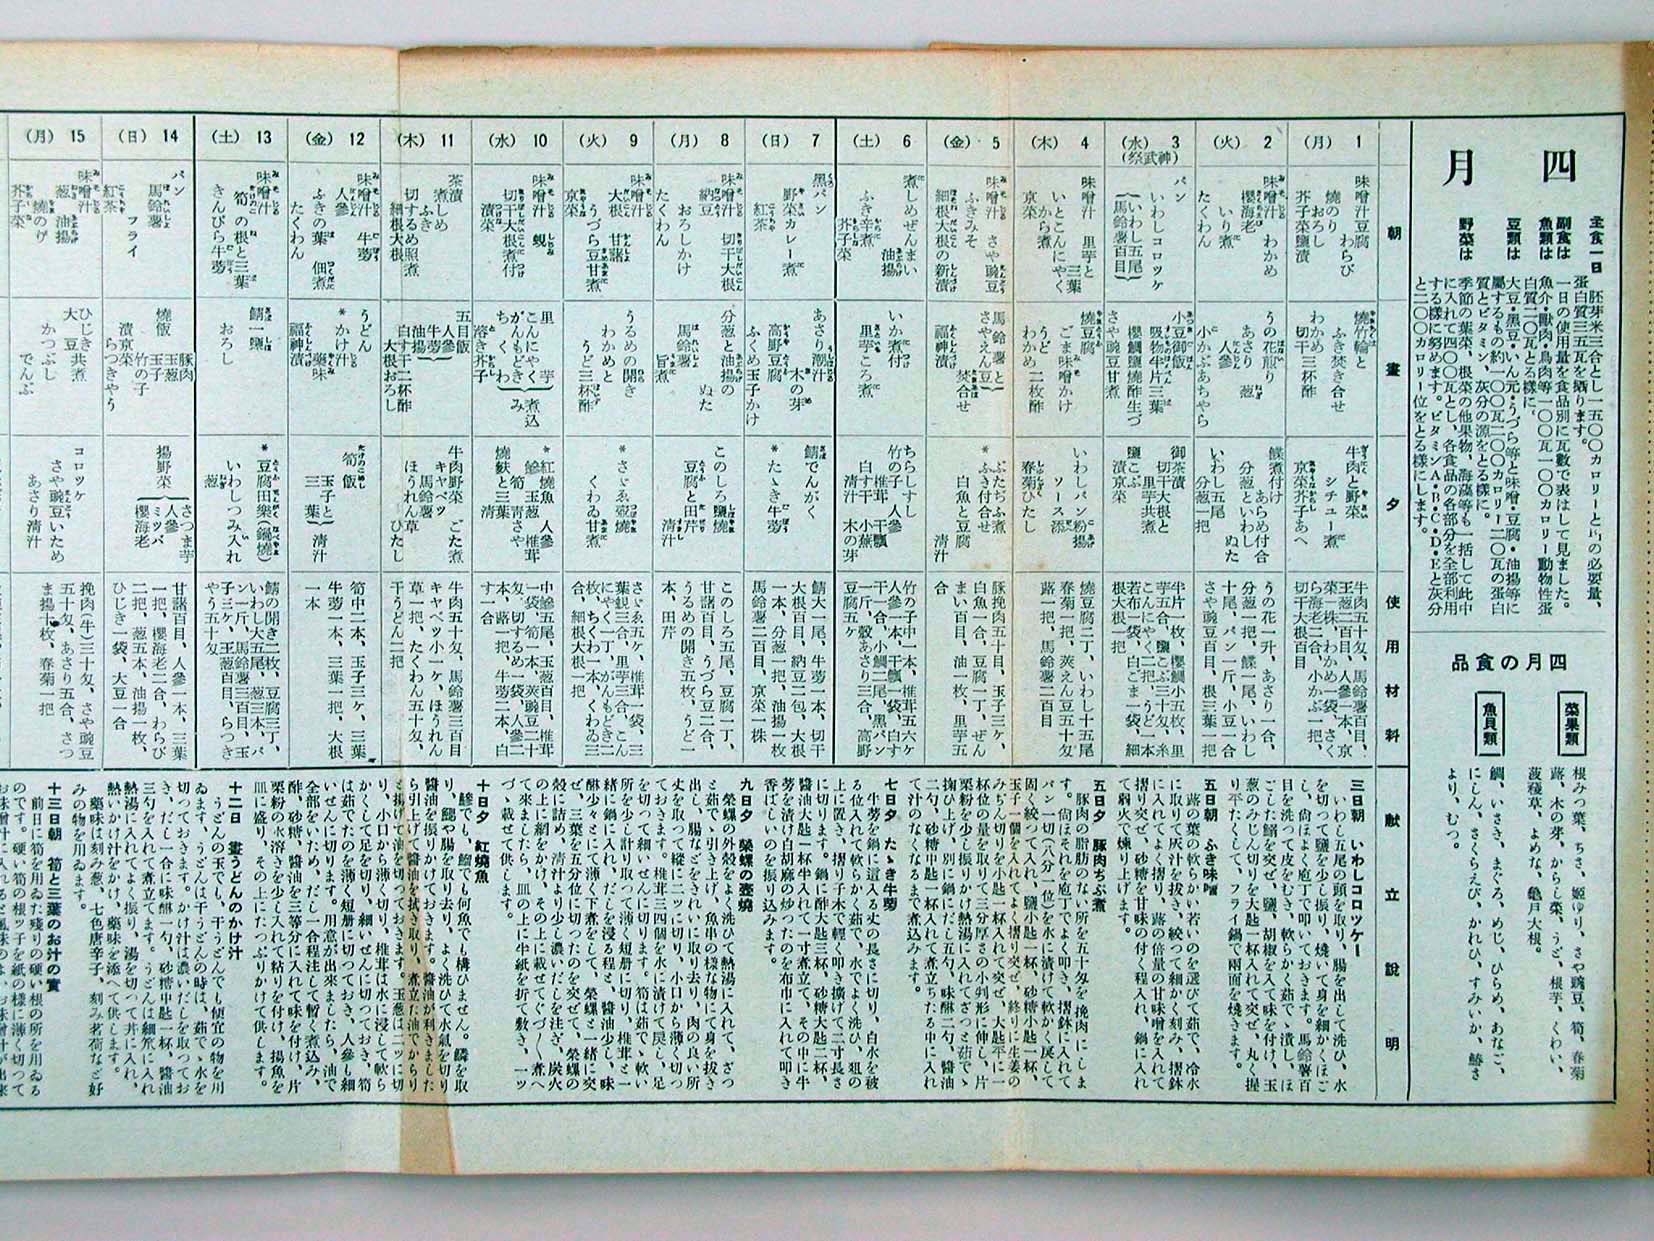 四月
主食一日
胚芽米三合とし一五〇〇カロリーと
蛋白質三五瓦を賄ります。
副食は
一日の使用量を食品別に瓦數で表はして見ました。
魚類は
魚介・獸肉・鳥肉等一〇〇瓦一〇〇カロリー動物性蛋
白質二〇瓦とる樣に、
豆類は
大豆・黑豆・いん元・うづら等と味噌・豆腐・油揚等に
屬するもの約一〇〇瓦二〇〇カロリー二〇瓦の蛋白
質とビタミン、灰分の源をとる樣に。
野菜は
季節の葉菜、根菜の他果物、海藻等も一括して此中
に入れて四〇〇瓦とし、各食品の各部分を全部利用
する樣に努めます。ビタミンA・B・C・D・Eと灰分
と二〇〇カロリー位をとる樣にします。
四月の食品
菜果類
根みつ葉、ちさ、姫ゆり、さや豌豆、筍、春菊
蕗、木の芽、からし菜、うど、根芋、くわい、
菠薐草、よめな、龜戸大根。
魚貝類
鯛、いさき、まぐろ、めじ、ひらめ、あなご、
にしん、さくらえび、かれひ、すみいか、鰆さ
より、むつ。
朝
晝
夕
使用材料
獻立說明
1
(月)
味噌汁豆腐 わらび
燒のり
おろし
芥子菜鹽漬
燒竹輪と
ふき焚き合せ
わかめ
切干三杯酢
牛肉と野菜
シチュー煮
京菜芥子あへ
牛肉五十匁、馬鈴薯百目、
玉葱二百目、人參一本、京
菜一株、わかめ一袋、さく
ら海老二合、小かぶ一把、
切干大根百目
2
(火)
味噌汁 わかめ
櫻海老
いり煮
たくわん
うの花煎り
あさり 葱
人參
小かぶあちやら
鰈煮付け
あらめ付合
分葱といわし
ぬた
いわし五尾
分葱一把
うの花一升、あさり一合、
分葱一把、鰈一尾、いわし
十尾、パン一斤、小豆一合、
さや豌豆百目、根三葉一把
3
(水)
(神武祭)
パン
いわしコロツケ
(いわし五尾
馬鈴薯百目)
小豆御飯
吸物牛片三葉
櫻鯛鹽燒酢生づ
さや豌豆甘煮
御茶漬
切干大根と
里芋共煮
鹽こぶ
漬京菜
牛片一枚、櫻鯛小五枚、里
芋五合、鹽こぶ三十匁、糸
こんにやく二把、うど一本
若布一袋、白ごま一袋、細
根大根一把
4
(木)
味噌汁 里芋と
三葉
いとこんにやく
から煮
京菜
燒豆腐
ごま味噌かけ
うど
わかめ 二枚酢
いわしパン粉揚
ソース添
春菊ひたし
燒豆腐二丁、いわし十五尾
春菊一把、莢えん豆五十匁
蕗一把、馬鈴薯二百目
5
(金)
味噌汁 さや豌豆
ふきみそ
細根大根の新漬
馬鈴薯と
さやえん豆
焚合せ
福神漬
*ぶたぢぶ煮
ふき付合せ
白魚と豆腐
清汁
豚挽肉五十目、玉子三ケ、
白魚一合、豆腐一丁、ぜん
まい百目、油一枚、里芋五
合
6
(土)
煮しめぜんまい
油揚
ふき辛煮
芥子菜
いか煮付
里芋ころ煮
ちらしすし
竹の子 人參
椎茸 干瓢
白す干 小蕪
清汁 木の芽
竹の子中一本、椎茸五六ケ
人參一本、干瓢一袋、白す
干一合、小鯛二尾、黑パン
一斤、殻あさり三合、高野
豆腐五ケ
7
(日)
黑パン
野菜カレー煮
紅茶
あさり潮汁
木の芽
高野豆腐
ふくめ玉子かけ
鯖でんがく
*たゝき牛蒡
鯖大一尾、牛蒡一本、切干
大根百目、納豆二包、大根
一本、分葱一把、油揚一枚、
馬鈴薯二百目、京菜一株
8
(月)
味噌汁 切干大根
納豆
おろしかけ
たくわん
分葱と油揚の
ぬた
馬鈴薯
旨煮
このしろ鹽燒
豆腐と田芹
清汁
このしろ五尾、豆腐一丁、
甘諸百目、うづら豆二合、
うるめの開き五枚、うど一
本、田芹
9
(火)
味噌汁
大根 甘諸
うづら豆甘煮
京菜
うるめの開き
わかめと
うど三杯酢
*さゞゑ壺燒
くわゐ甘煮
さゞゑ五ケ、椎茸一袋、三
葉、蜆三合、里芋三合、こん
にやく一丁、がんもどき二
枚、ちくわ一本、くわゐ三
合、細根大根一把
10
(水)
味噌汁 蜆
切干大根煮付
漬菜
里芋
こんにやく
がんもどき
ちくわ
煮込み
溶き芥子
*紅燒魚 人參
鯵 玉葱 椎茸
筍 青さや
燒麩と三葉
清汁
中鯵五尾、玉葱百目、椎茸
一袋、筍一本、莢豌豆二十
匁、切するめ一袋、人參二
本、蕗一把、牛蒡二本、白
す一合
11
(木)
茶漬
煮しめ
ふき
切するめ照煮
細根大根
五目飯
人參
牛蒡
油揚
白す干二杯酢
大根おろし
牛肉野菜 ごた煮
キャベツ
馬鈴薯
ほうれん草
ひたし
牛肉五十匁、馬鈴薯三百目
キャベツ小一ケ、ほうれん
草一把、たくわん五十匁、
干うどん二把
12
(金)
味噌汁 牛蒡
人參
ふきの葉 佃煮
たくわん
うどん
*かけ汁
藥味
福神漬
筍飯
玉子と
三葉 清汁
筍中二本、玉子三ケ、三葉
牛蒡一本、三葉一把、大根
一本
13
(土)
味噌汁
筍の根と三葉
きんぴら牛蒡
鯖一鹽
おろし
*豆腐田樂(鍋燒)
いわしつみ入れ
葱
鯖の開き二枚、豆腐三丁、
いわし大五尾、葱三本、パ
ン一斤、馬鈴薯三百匁、玉
子三ケ、玉葱百目、らつき
やう五十匁
14
(日)
パン
馬鈴薯
フライ
紅茶
燒飯
豚肉
玉葱
玉子
竹の子
らつきやう
漬京菜
揚野菜
さつま芋
人參
ミツバ
櫻海老
甘諸百目、人參一本、三葉
一把、櫻海老二合、わらび
二把、葱五本、油揚一枚、
ひじき一袋、大豆一合
15
(月)
味噌汁
葱 油揚
燒のり
芥子菜
ひじき共煮
大豆
かつぶし
でんぶ
コロッケ
さや豌豆いため
あさり清汁
挽肉(牛)三十匁、さや豌豆
五十匁、あさり五合、さつ
ま揚十枚、春菊一把
三日朝 いわしコロッケー
いわし五尾の頭を取り、腸を出して洗ひ、水
を切つて鹽を少し振り、燒いて身を細かくほご
し、尙ほよく庖丁で叩いておきます。馬鈴薯百
目を洗つて皮をむき、軟らかく茹でゝ潰し、ほ
ごした鰯を交ぜ、鹽、胡椒を入れて味を付け、玉
葱のみじん切りを大匙一杯入れて交ぜ、丸く握
り平たくして、フライ鍋で兩面を燒きます。
五日朝 ふき味噌
蕗の葉の軟らかい若いのを選びて茹で、冷水
に取りて灰汁を拔き、絞つて細かく刻み、摺鉢
に入れてよく摺り、蕗の倍量の甘味噌を入れて
摺り交ぜ、砂糖を甘味の付く程入れ、鍋に入れ
て弱火で煉り上げます。
五日夕 豚肉ぢぶ煮
豚肉の脂肪のない所を五十匁、挽肉にしま
す。尙ほそれを庖丁でよく叩き、摺鉢に入れて
パン一切(八分ノ一位)を水に漬けて軟かく戻して
固く絞つて入れ、鹽小匙一杯、砂糖小匙一杯、
玉子一個を入れてよく摺り交ぜ、終りに生姜の
みぢん切りを小匙一杯入れて交ぜ、大匙平に一
杯位の量を取りて三分厚さの小判形に伸し、片
栗粉を少し振りかけ熱湯に入れてざつと茹でゝ
掬ひ上げ、別に鍋にだし五勺、味醂二勺、醬油
二勺、砂糖中匙一杯入れて煮立ちたる中に入れ
て汁のなくなるまで煮込みます。
七日夕 たゝき牛蒡
牛蒡を鍋に這入る丈の長さに切り、白水を被
る位入れて軟らかく茹で、水でよく洗ひ、俎の
上に置き、摺り子木で輕く叩き擴げて二寸長さ
に切ります。鍋に酢大匙三杯、砂糖大匙二杯、
醬油大匙一杯半入れて一寸煮立て、その中に牛
蒡を漬け白胡麻の炒つたのを布巾に入れて叩き
香ばしいのを振り込みます。
九日夕 榮螺の壺燒
榮螺の外殻をよく洗ひて熱湯に入れて、ざつ
と茹でゝ引き上げ、魚串の樣な物にて身を拔き
出し、腸などをきれいに取り去り、肉の良い所
丈を取つて縱に二ツに切り、小口から薄く切つ
ておきます。椎茸三四個を水に漬けて戻し、足
を切つて細いせんに切ります。筍は茹で、軟い
所を少し計り取つて薄く短册に切り、椎茸と一
緖に鍋に入れ、だしを浸る程と、醬油少し、味
醂少々とにて薄く下煮をして、榮螺と一緖に交
ぜ、三葉を五分位に切つたのを交ぜて、榮螺の
殻に詰め、淸汁より少し濃いだしを注ぎ、炭火
の上に網をかけ、その上に載せてぐづ〳〵煮へ
て來ましたら、皿の上に半紙を折て敷き、一ツ
づゝ載せて供します。
十日夕 紅燒魚
鯵でも、鰮でも何魚でも構ひません。鱗を取
り、鰓や腸を取り去り、よく洗ひて水氣を切り
醬油を振りかけておきます。醬油が利きました
ら引上げて醬油を拭き取り、煮立た油でからり
と揚げて油を切つておきます。玉葱は二ッに切
り、小口から薄く切り、椎茸は水に浸して軟ら
かくして足を切り、細いせんに切つておき、筍
は茹でたのを薄く短册に切つておき、人參も細
いせんに切ります。用意が出來ましたら、油で
全部をいため、だし一合程注して暫く煮込み、
酢、砂糖、醬油を三等分に入れて味を付け、片
栗粉の水溶きを少し入れて粘りを付け、揚魚を
皿に盛り、その上にたつぷりかけて供します。
十二日 晝うどんのかけ汁
うどんの玉でも、干うどんでも便宜の物を用
ゐます、うどんは干うどんの時は、茹でゝ水を
切つておきます。かけ汁は濃いだしを取つてお
き、だし一合に味醂一勺、砂糖中匙一杯、醬油
三勺を入れて煮立てます。うどんは細笊に入れ
熱湯に入れてよく振り、湯を切つて丼に入れ、
熱いかけ汁をかけ、藥味を添へて供します。
藥味は刻み葱、七色唐辛子、刻み茗荷など好
みの物を用ゐます。
十三日朝 筍と三葉のお汁の實
前日に筍を用ゐた殘りの硬い根の所を用ゐる
のです。硬い筍の根ッ子を紙の樣に薄く切つて